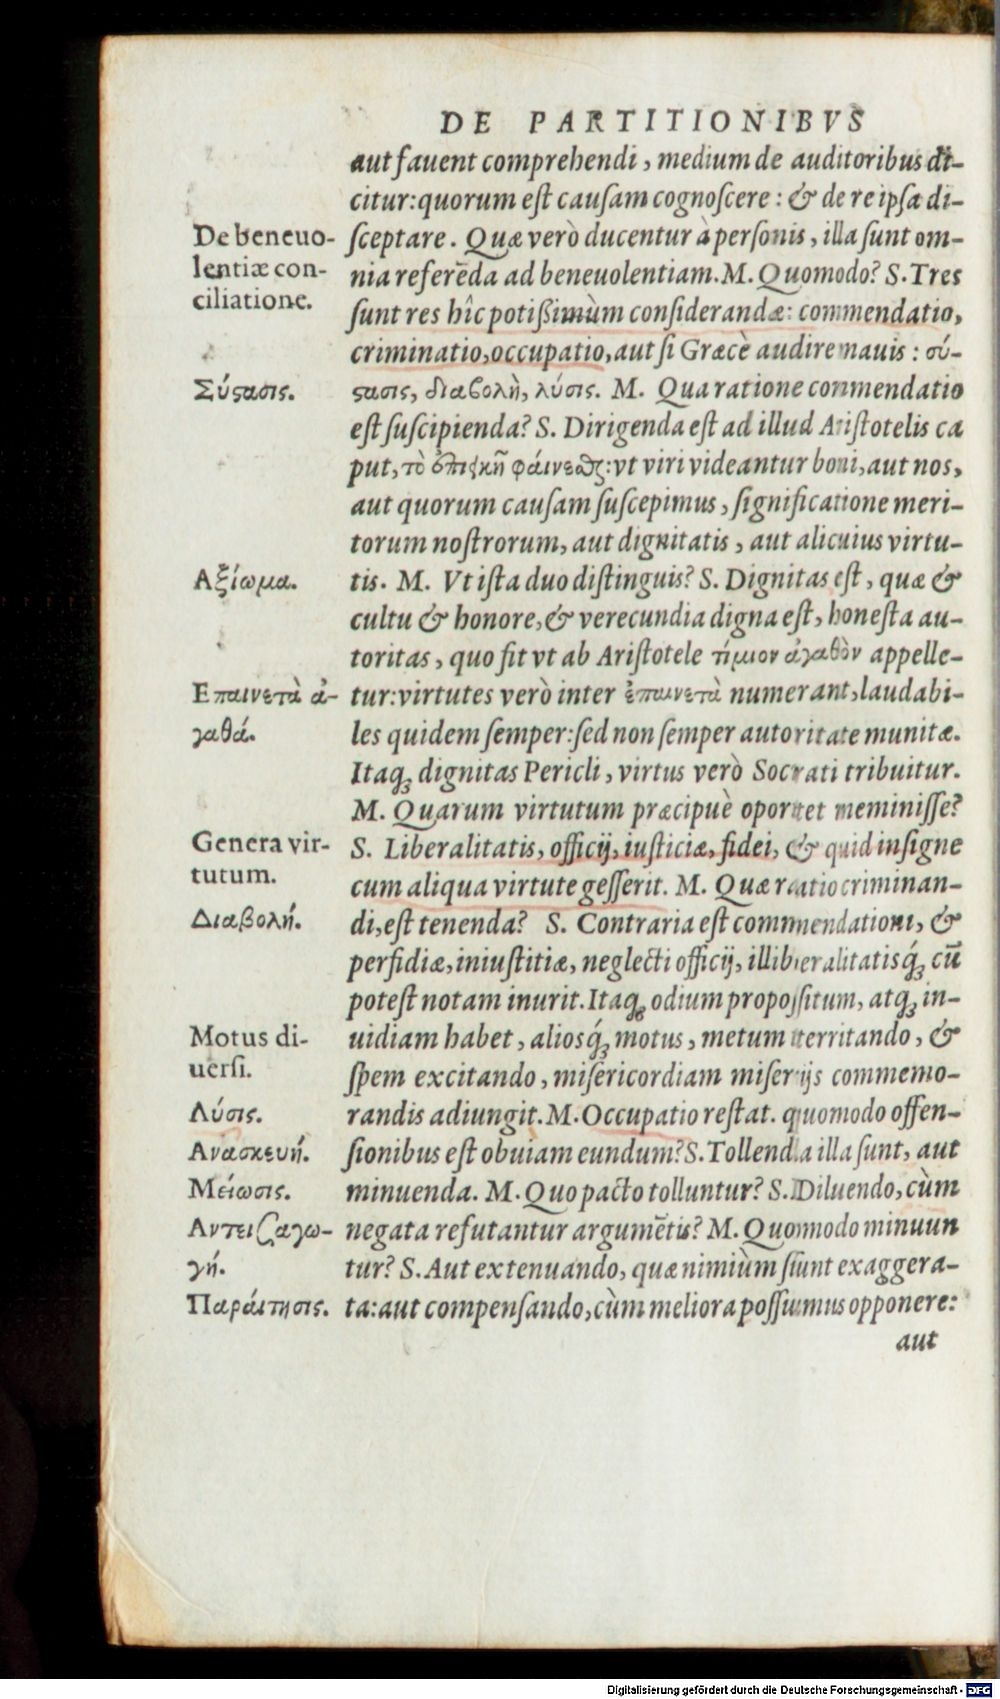 DE PARTITIONIBVS
aut fauent comprehendi, medium de auditoribus di-
citur: quorum est causam cognoscere: & de re ipsa di-
De beneuo-
lentiæ con-
ciliatione.
sceptare. Quæ verò ducentur à personis, illa sunt om-
nia referẽda ad beneuolentiam. M. Quomodo? S. Tres
sunt res hîc potißimùm considerandæ: commendatio,
criminatio, occupatio, aut si Græcè audire mauis: σύ-
Σύϛασις.
ϛασις, διαβολὴ, λύσις. M. Qua ratione commendatio
est suscipienda? S. Dirigenda est ad illud Aristotelis ca
put, τὸ ἐπιεικῆ φάινεσθαι: vt viri videantur boni, aut nos,
aut quorum causam suscepimus, significatione meri-
torum nostrorum, aut dignitatis, aut alicuius virtu-
Αξίωμα.
tis. M. Vt ista duo distinguis? S. Dignitas est, quæ &
cultu & honore, & verecundia digna est, honesta au-
toritas, quo fit vt ab Aristotele τίμιον ἀγαθὸν appelle-
Επαινετὰ ἀ-
γαθά.
tur: virtutes verò inter ἐπαινετὰ numerant, laudabi-
les quidem semper: sed non semper autoritate munitæ.
Itaq; dignitas Pericli, virtus verò Socrati tribuitur.
M. Quarum virtutum præcipuè oportet meminisse?
Genera vir-
tutum.
S. Liberalitatis, officij, iusticiæ, fidei, & quid insigne
cum aliqua virtute gesserit. M. Quæ ratio criminan-
Διαβολή.
di, est tenenda? S. Contraria est commendationi, &
perfidiæ, iniustitiæ, neglecti officij, illiberalitatisq́; cũ
potest notam inurit. Itaq; odium propositum, atq; in-
Motus di-
uersi.
uidiam habet, aliosq́; motus, metum territando, &
spem excitando, misericordiam miserijs commemo-
Λύσις.
randis adiungit. M. Occupatio restat. quomodo offen-
Ανασκευή.
sionibus est obuiam eundum? S. Tollenda illa sunt, aut
Μείωσις.
minuenda. M. Quo pacto tolluntur? S. Diluendo, cùm
Αντεισαγω-
γή.
negata refutantur argumẽtis? M. Quomodo minuun
tur? S. Aut extenuando, quæ nimiùm siunt exaggera-
Παράιτησις.
ta: aut compensando, cùm meliora possumus opponere:
aut
Digitalisierung gefördert durch die Deutsche Forschungsgemeinschaft - DFG